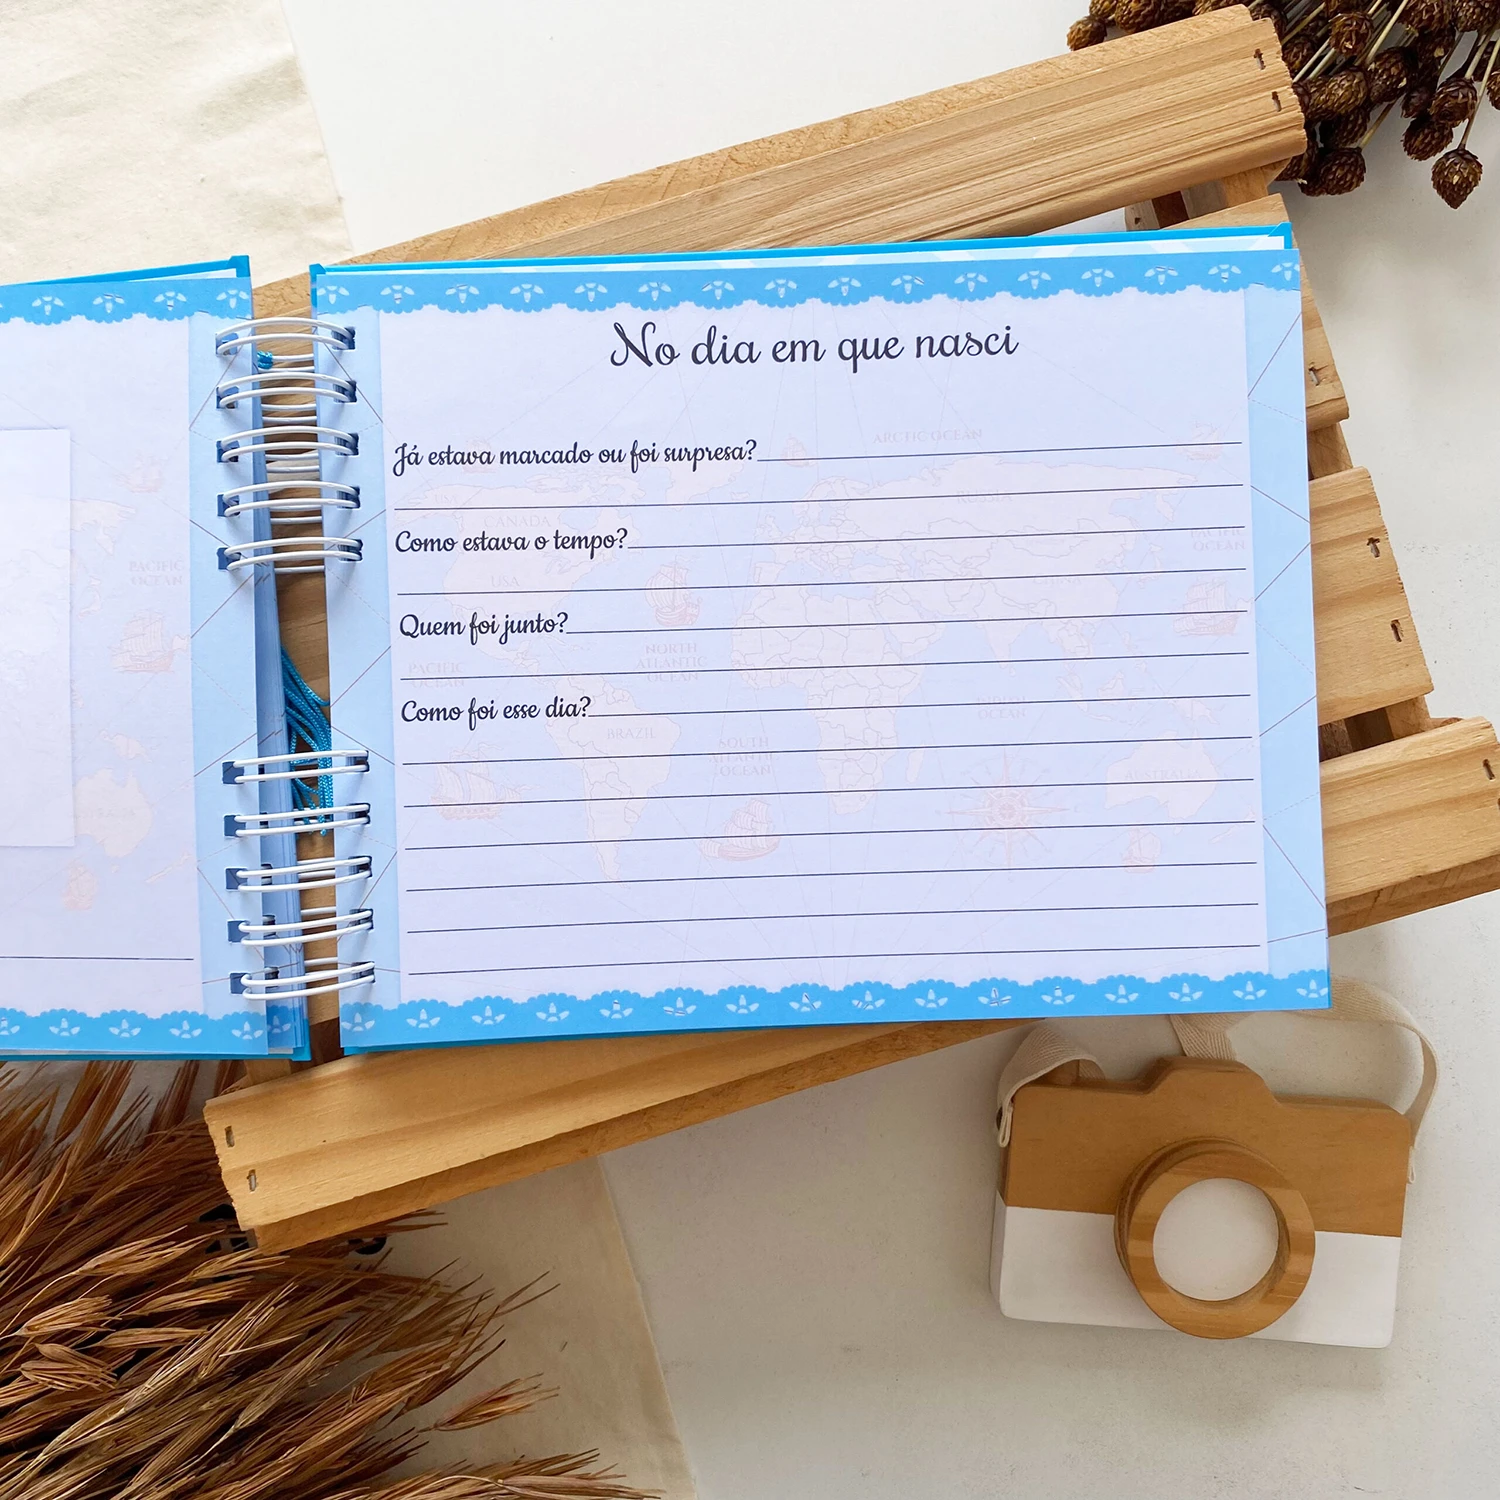 No dia em que nasci
Já estava marcado ou foi surpresa?
Como estava o tempo?
Quem foi junto?
Como foi esse dia?
ARCTIC OCEAN
USA
CANADA
RUSSIA
PACIFIC
OCEAN
USA
CHINA
NORTH
ATLANTIC
OCEAN
PACIFIC
OCEAN
INDIAN
OCEAN
BRAZIL
SOUTH
ATLANTIC
OCEAN
AUSTRALIA
PACIFIC
OCEAN